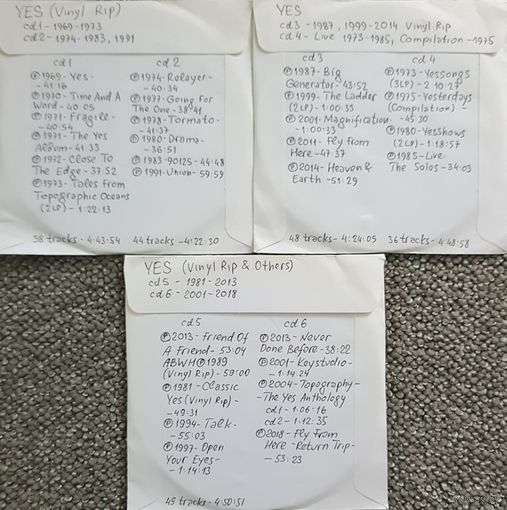 YES (Vinyl Rip)
cd1 - 1969-1973
cd2 - 1974-1983, 1991
cd1
℗1969 - Yes -
- 41:16
℗1970 - Time And A
Word - 40:05
℗1971 - Fragile -
- 40:54
℗1971 - The Yes
Album - 41:33
℗1972 - Close To
The Edge - 37:52
℗1973 - Tales From
Topographic Oceans
(2LP) - 1:22:13
38 tracks - 4:43:54
cd2
℗1974 - Relayer -
- 40:34
℗1977 - Going For
The One - 38:41
℗1978 - Tormato -
- 41:37
℗1980 - Drama -
- 36:51
℗1983 - 90125 - 44:48
℗1991 - Union - 59:59
44 tracks - 4:22:30
YES
cd3 - 1987, 1999-2014 Vinyl Rip
cd4 - Live 1973-1985, Compilation - 1975
cd3
℗1987 - Big
Generator - 43:52
℗1999 - The Ladder
(2LP) - 1:00:33
℗2001 - Magnification
- 1:00:33
℗2011 - Fly From
Here - 47:37
℗2014 - Heaven &
Earth - 51:29
48 tracks - 4:24:05
cd4
℗1973 - Yessongs
(3LP) - 2:10:27
℗1975 - Yesterdays
(Compilation) -
- 45:30
℗1980 - Yesshows
(2LP) - 1:18:57
℗1985 - Live -
The Solos - 34:03
36 tracks - 4:48:58
YES (Vinyl Rip & Others)
cd5 - 1981-2013
cd6 - 2001-2018
cd5
℗2013 - Friend Of
A Friend - 53:04
ABWH ℗1989
(Vinyl Rip) - 59:00
℗1981 - Classic
Yes (Vinyl Rip) -
- 49:31
℗1994 - Talk -
- 55:03
℗1997 - Open
Your Eyes -
- 1:14:13
45 tracks - 4:50:51
cd6
℗2013 - Never
Done Before - 38:22
℗2001 - Keystudio -
- 1:14:24
℗2004 - Topography -
- The Yes Anthology
cd1 - 1:06:16
cd2 - 1:12:35
℗2018 - Fly From
Here - Return Trip -
- 53:23